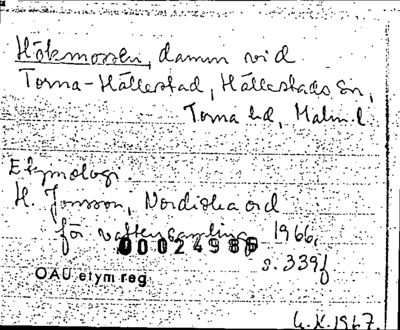 Hökmossen, damm vid
Torna-Hällestad, Hällestads sn,
Torna hd, Malm. l.
Etymologi.
H. Jonsson, Nordiska ord
för vattensamling, 1966,
s. 339f
00024988
OAU etym reg
4.X.1967